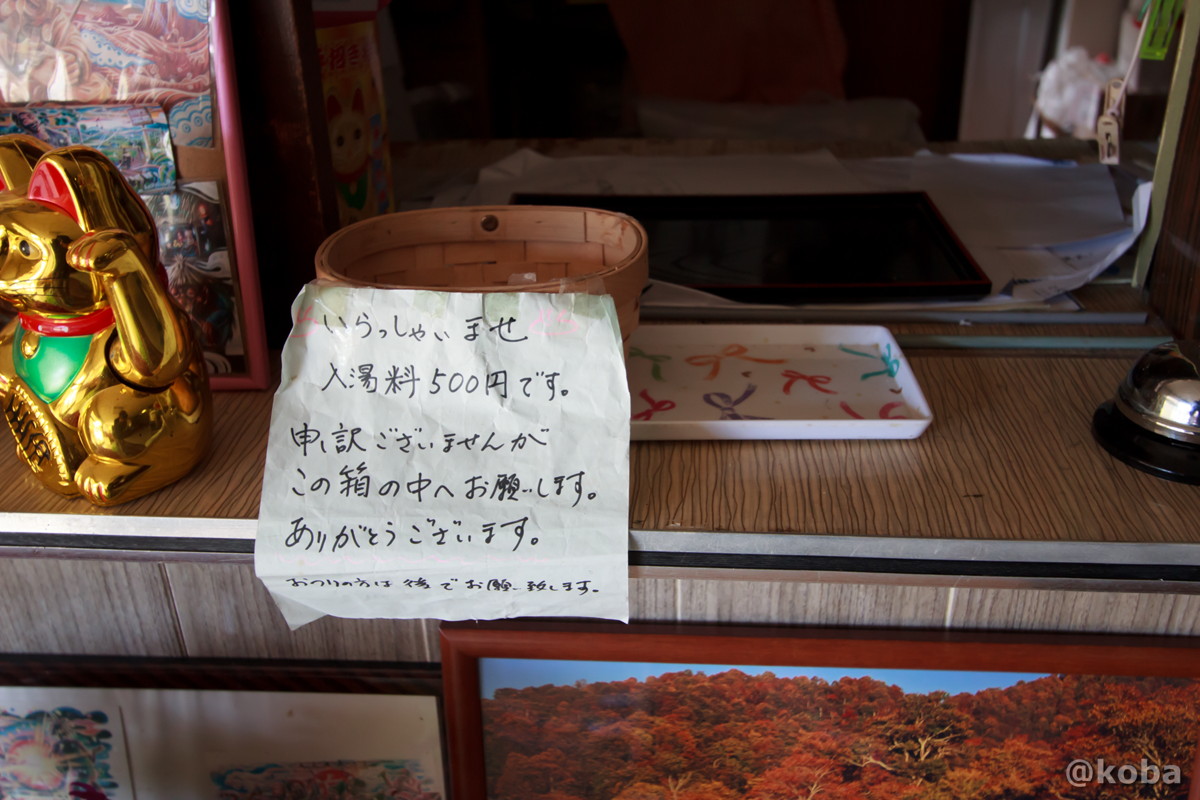 いらっしゃいませ
入湯料500円です。
申し訳ございませんが
この箱の中へお願いします。
ありがとうございます。
おつりの方は後でお願い致します。
@koba